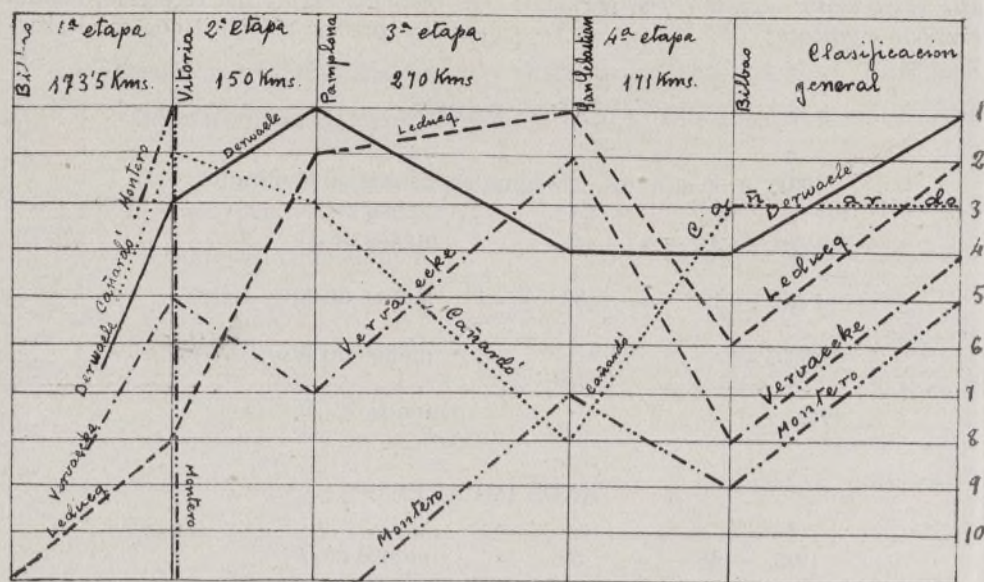 Bilbao
1ª etapa
173'5 Kms.
Vitoria
2ª etapa
150 Kms.
Pamplona
3ª etapa
270 Kms.
San Sebastian
4ª etapa
171 Kms.
Bilbao
Clasificacion
general
1
2
3
4
5
6
7
8
9
10
Montero
Cañardó
Derwaele
Vervaecke
Leducq
Montero
Derwaele
Leducq
Vervaecke
Cañardo
Montero
Cañardó
Cañardo
Derwaele
Leducq
Vervaecke
Montero